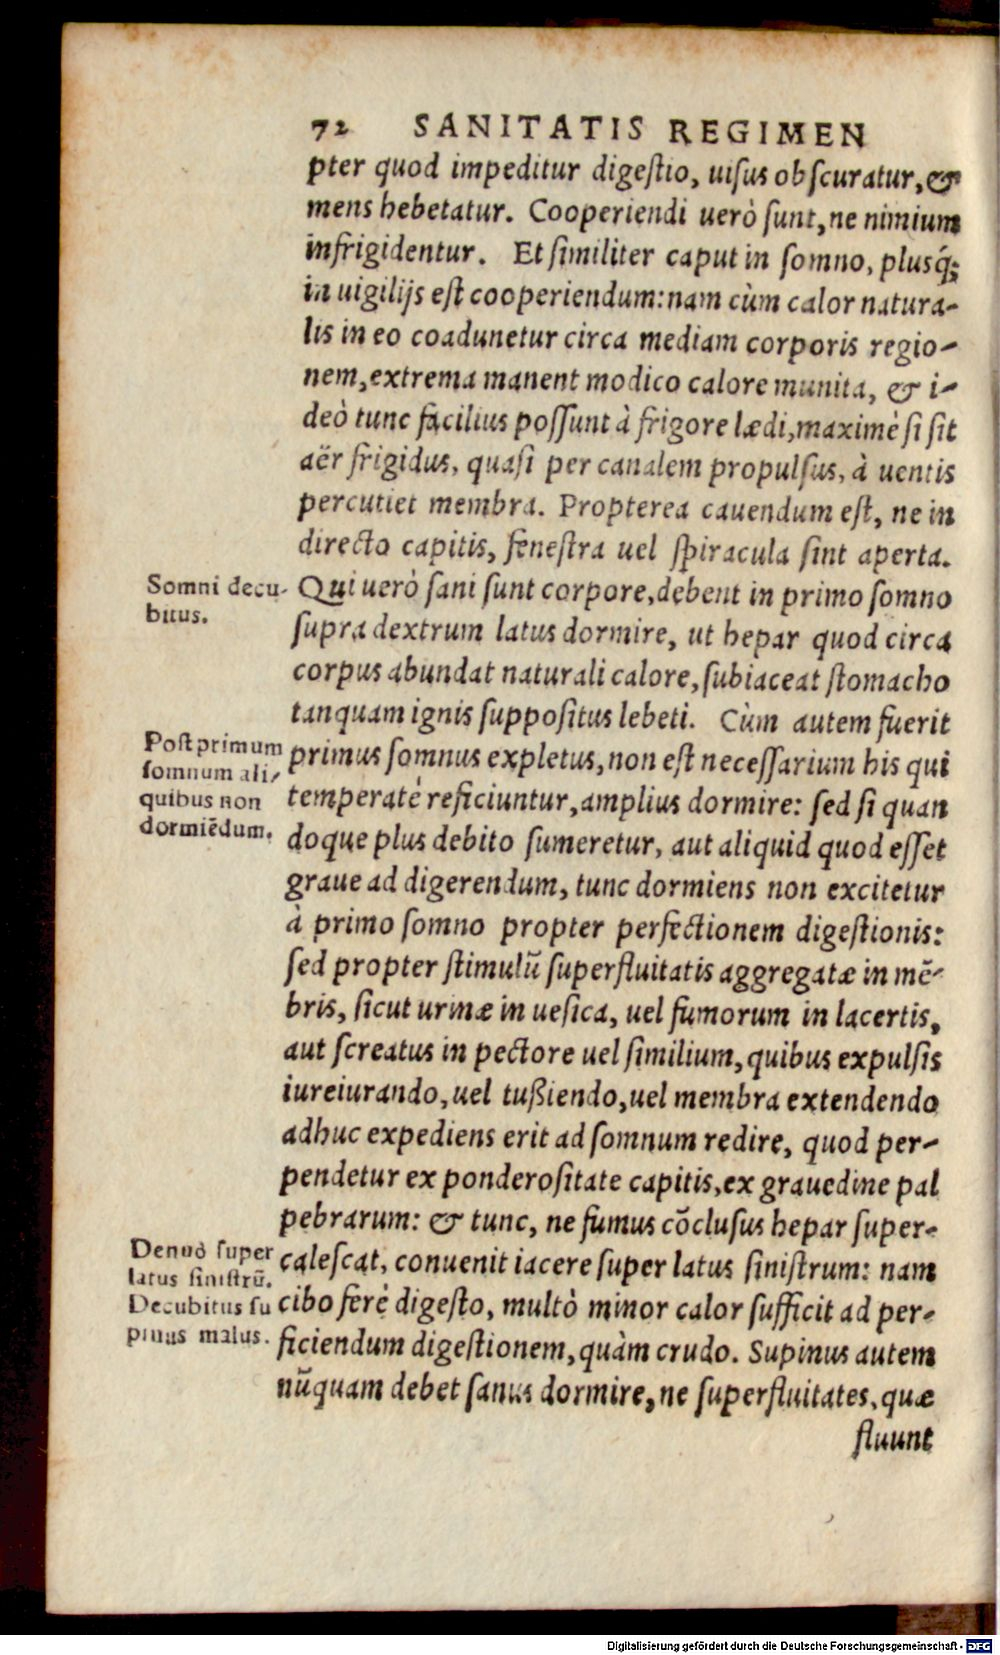 72 SANITATIS REGIMEN
pter quod impeditur digestio, uisus obscuratur, &
mens hebetatur. Cooperiendi uerò sunt, ne nimium
infrigidentur. Et similiter caput in somno, plusq́;
in uigilijs est cooperiendum: nam cùm calor natura-
lis in eo coadunetur circa mediam corporis regio-
nem, extrema manent modico calore munita, & i-
deò tunc facilius possunt à frigore lædi, maximè si sit
aër frigidus, quasi per canalem propulsus, à uentis
percutiet membra. Propterea cauendum est, ne in
directo capitis, fenestra uel spiracula sint aperta.
Somni decu-
bitus.
Qui uerò sani sunt corpore, debent in primo somno
supra dextrum latus dormire, ut hepar quod circa
corpus abundat naturali calore, subiaceat stomacho
tanquam ignis suppositus lebeti. Cùm autem fuerit
Post primum
somnum ali-
quibus non
dormiēdum.
primus somnus expletus, non est necessarium his qui
temperatè reficiuntur, amplius dormire: sed si quan
doque plus debito sumeretur, aut aliquid quod esset
graue ad digerendum, tunc dormiens non excitetur
à primo somno propter perfectionem digestionis:
sed propter stimulū superfluitatis aggregatæ in mē-
bris, sicut urinæ in uesica, uel fumorum in lacertis,
aut screatus in pectore uel similium, quibus expulsis
iureiurando, uel tußiendo, uel membra extendendo
adhuc expediens erit ad somnum redire, quod per-
pendetur ex ponderositate capitis, ex grauedine pal
pebrarum: & tunc, ne fumus cōclusus hepar super-
Denuò super
latus sinistrū.
Decubitus su
pinus malus.
calescat, conuenit iacere super latus sinistrum: nam
cibo ferè digesto, multò minor calor sufficit ad per-
ficiendum digestionem, quàm crudo. Supinus autem
nūquam debet sanus dormire, ne superfluitates, quæ
fluunt
Digitalisierung gefördert durch die Deutsche Forschungsgemeinschaft - DFG